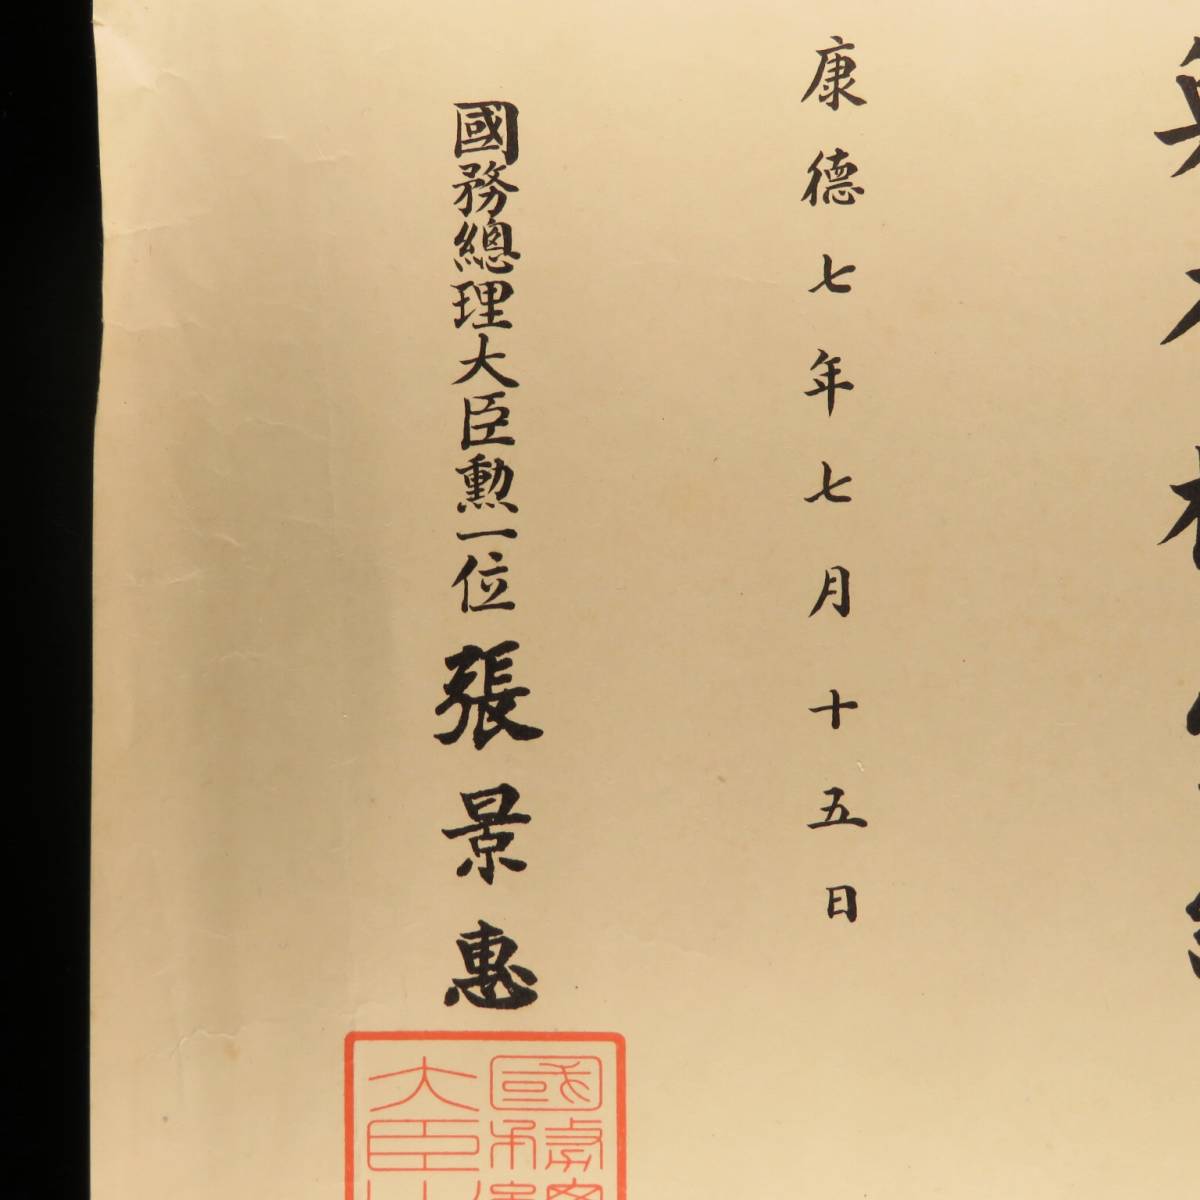 康德七年七月十五日
國務總理大臣勲一位張景惠
國務總
大臣